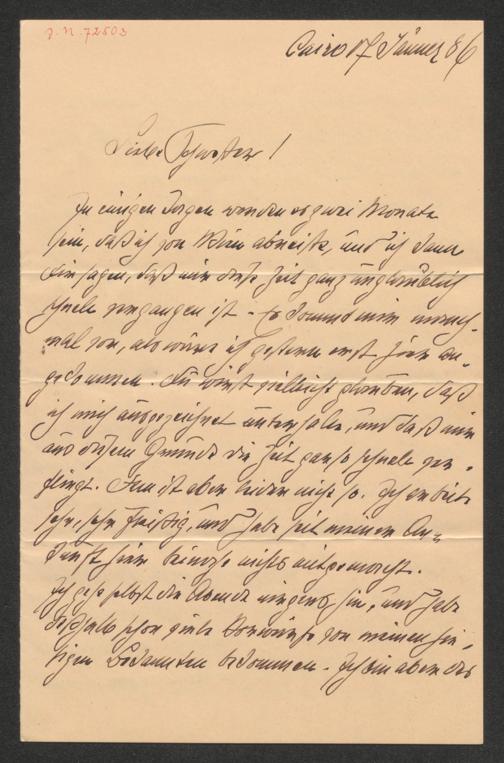 J. N. 72503
Cairo 17 Jänner 86
Liebe Schwester!
In einigen Tagen werden es zwei Monate
sein, daß ich von Wien abreiste, und ich kann
dir sagen, daß mir diese Zeit ganz unglaublich
schnell vergangen ist - Es kommt mir manch-
mal vor, als wäre ich gestern erst hier an-
gekommen. Du wirst vielleicht glauben, daß
ich mich ausgezeichnet unterhalte, und daß mir
aus diesem Grunde die Zeit so schnell ver-
fliegt. Dem ist aber leider nicht so. Ich arbeite
sehr, sehr fleißig, und habe seit meiner An-
kunft hier beinahe nichts mitgemacht.
Ich gehe selbst die Abende nirgends hin, und habe
deßhalb schon viele Vorwürfe von meinen hie-
sigen Bekannten bekommen. - Ich bin aber des